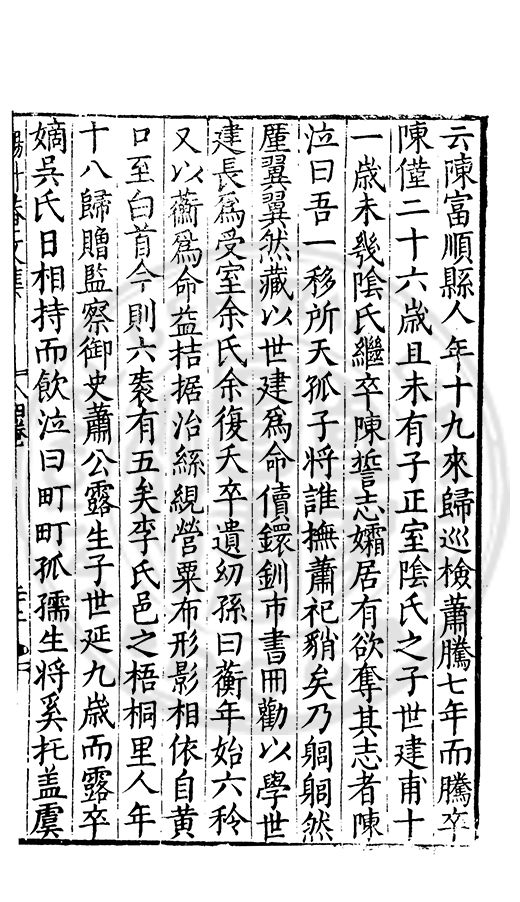 云陳富順縣人年十九來歸巡檢蕭騰七年而騰卒
陳僅二十六歲且未有子正室陰氏之子世建甫十
一歲未幾陰氏繼卒陳誓志孀居有欲奪其志者陳
泣曰吾一移所天孤子將誰撫蕭祀豑矣乃躬躬然
壓翼翼然藏以世建爲命儥鐶釧市書冊勸以學世
建長爲受室余氏余復夭卒遺幼孫曰蘅年始六秢
又以蘅爲命益拮据治絲絸營粟布形影相依自黃
口至白首今則六袠有五矣李氏邑之梧桐里人年
十八歸贈監察御史蕭公露生子世延九歲而露卒
嫡吳氏日相持而飲泣曰町町孤孺生將奚托盖虞